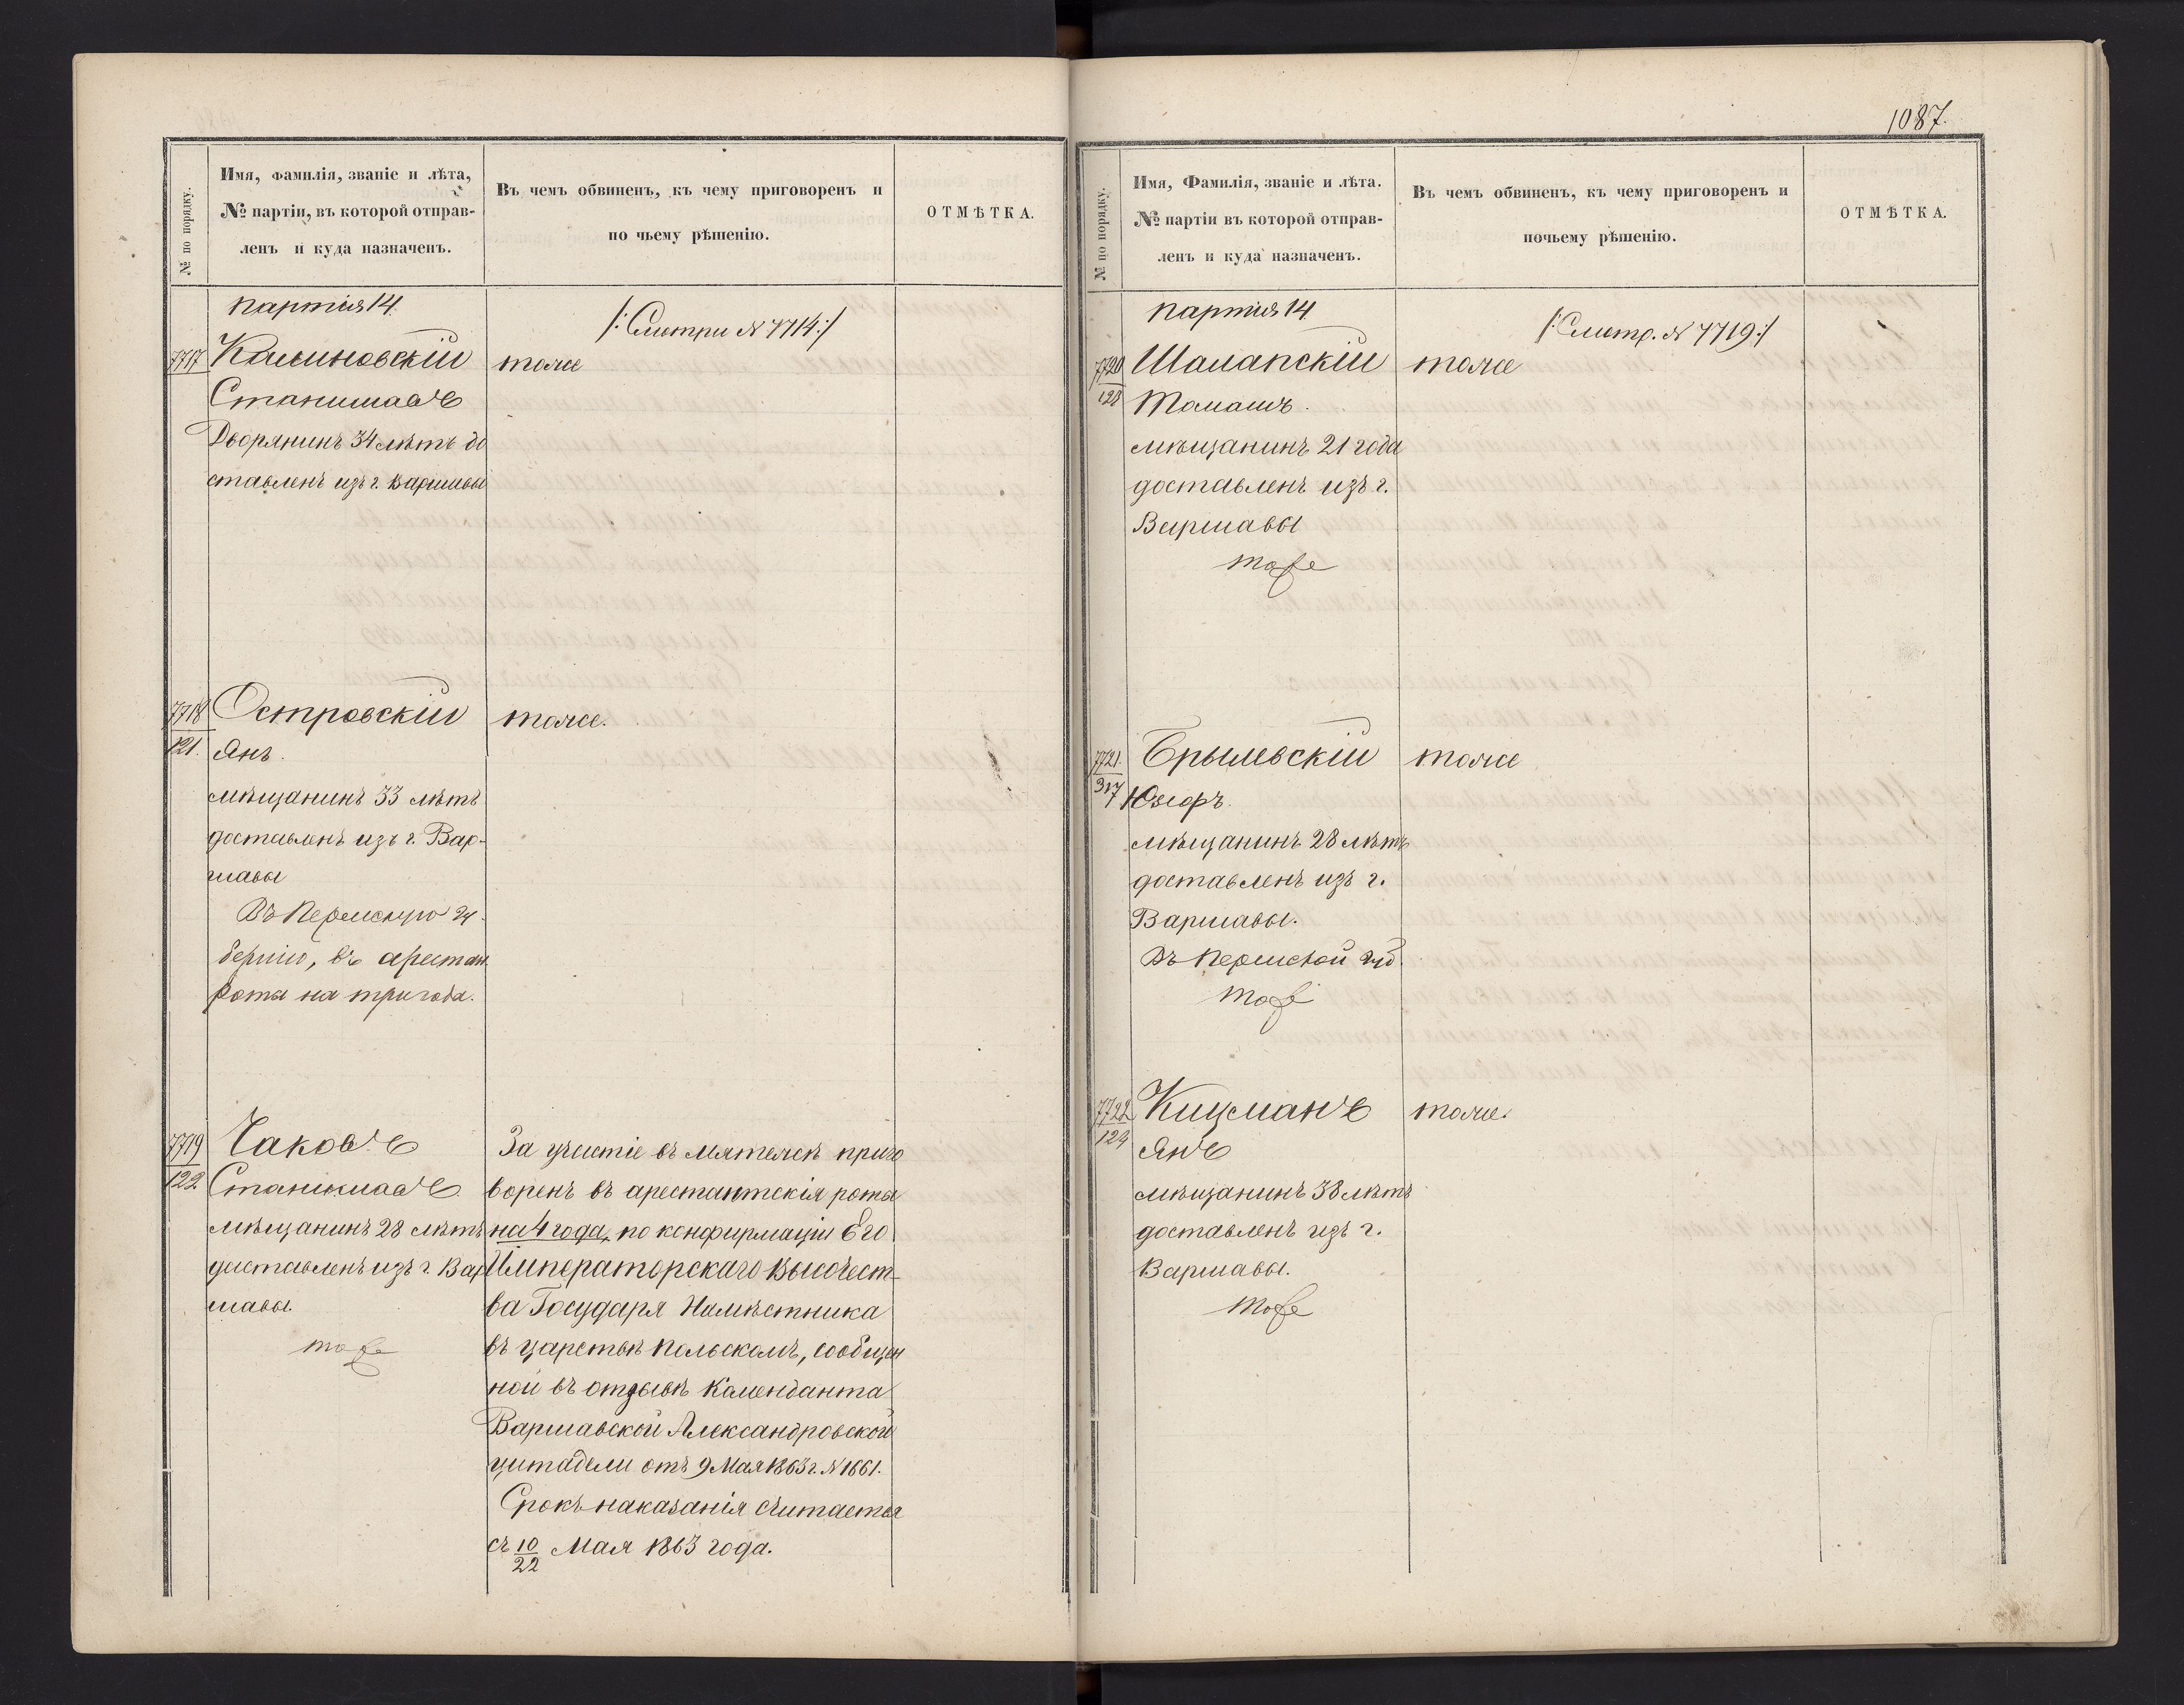 № по порядку.
Имя, Фамилія, званіе и лѣта,
№ партіи, въ которой отправ-
ленъ и куда назначенъ.
Въ чемъ обвиненъ, къ чему приговоренъ и
по чьему рѣшенію.
ОТМѢТКА.
партія 14.
/: Смотри N 7714 :/
7717 Калиновскій тоже
Станиславъ
Дворянинъ 34 лѣтъ до
ставленъ изъ г. Варшавы
7718 Островскій тоже.
121. Янъ.
мѣщанинъ 33 лѣтъ
доставленъ изъ г. Вар-
шавы
Въ Пермскую гу-
бернію, въ арестан.
роты на три года.
7719 Чаковъ
122 Станиславъ
мѣщанинъ 28 лѣтъ
доставленъ изъ г. Вар
шавы.
тоже
За участіе въ мятежѣ приго
воренъ въ арестантскія роты
на 4 года, по конфирмаціи Его
Императорскаго Высочест-
ва Государя Намѣстника
въ царствѣ Польскомъ, сообщен
ной въ отзывѣ Коменданта
Варшавской Александровской
цитадели отъ 9 Мая 1863 г. N 1661.
Срокъ наказанія считается
съ 10/22 Мая 1863 года.
1087.
№ по порядку.
Имя, Фамилія, званіе и лѣта.
№ партіи въ которой отправ-
ленъ и куда назначенъ.
Въ чемъ обвиненъ, къ чему приговоренъ и
почьему рѣшенію.
ОТМѢТКА.
партія 14
/: Смотр. N 7719 :/
7720 Шалапскій тоже
128 Томашъ.
мѣщанинъ 21 года
доставленъ изъ г.
Варшавы
тоже
7721. Брылевскій тоже
317 Юзефъ.
мѣщанинъ 28 лѣтъ
доставленъ изъ г.
Варшавы.
Въ Пермской губ.
тоже
7722 Кицманъ тоже.
124 Янъ
мѣщанинъ 38 лѣтъ
доставленъ изъ г.
Варшавы.
тоже